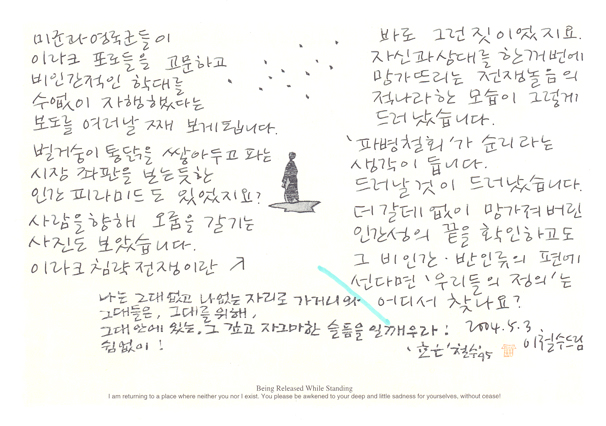 미군과 영국군들이
이라크 포로들을 고문하고
비인간적인 학대를
수없이 자행했다는
보도를 여러날 째 보게됩니다.
벌거숭이 통닭을 쌓아두고 파는
시장 좌판을 보는듯한
인간 피라미드도 있었지요?
사람을향해 오줌을 갈기는
사진도 보았습니다.
이라크 침략전쟁이란 ↗
바로 그런 짓이었지요.
자신과상대를 한꺼번에
망가뜨리는 전쟁놀음의
적나라한 모습이 그렇게
드러났습니다.
'파병철회'가 순리라는
생각이 듭니다.
드러날것이 드러났습니다.
더 갈데없이 망가져버린
인간성의 끝을 확인하고도
그 비인간·반인륜의 편에
선다면 '우리들의 정의'는
어디서 찾나요?
나는 그대없고 나없는 자리로 가거니와
그대들은, 그대를 위해,
그대안에 있는, 그 깊고 자그마한 슬픔을 일깨우라!
쉼없이!
2004.5.3
이철수드림
철수 95
Being Released While Standing
I am returning to a place where neither you nor I exist. You please be awkened to your deep and little sadness for yourselves, without cease!